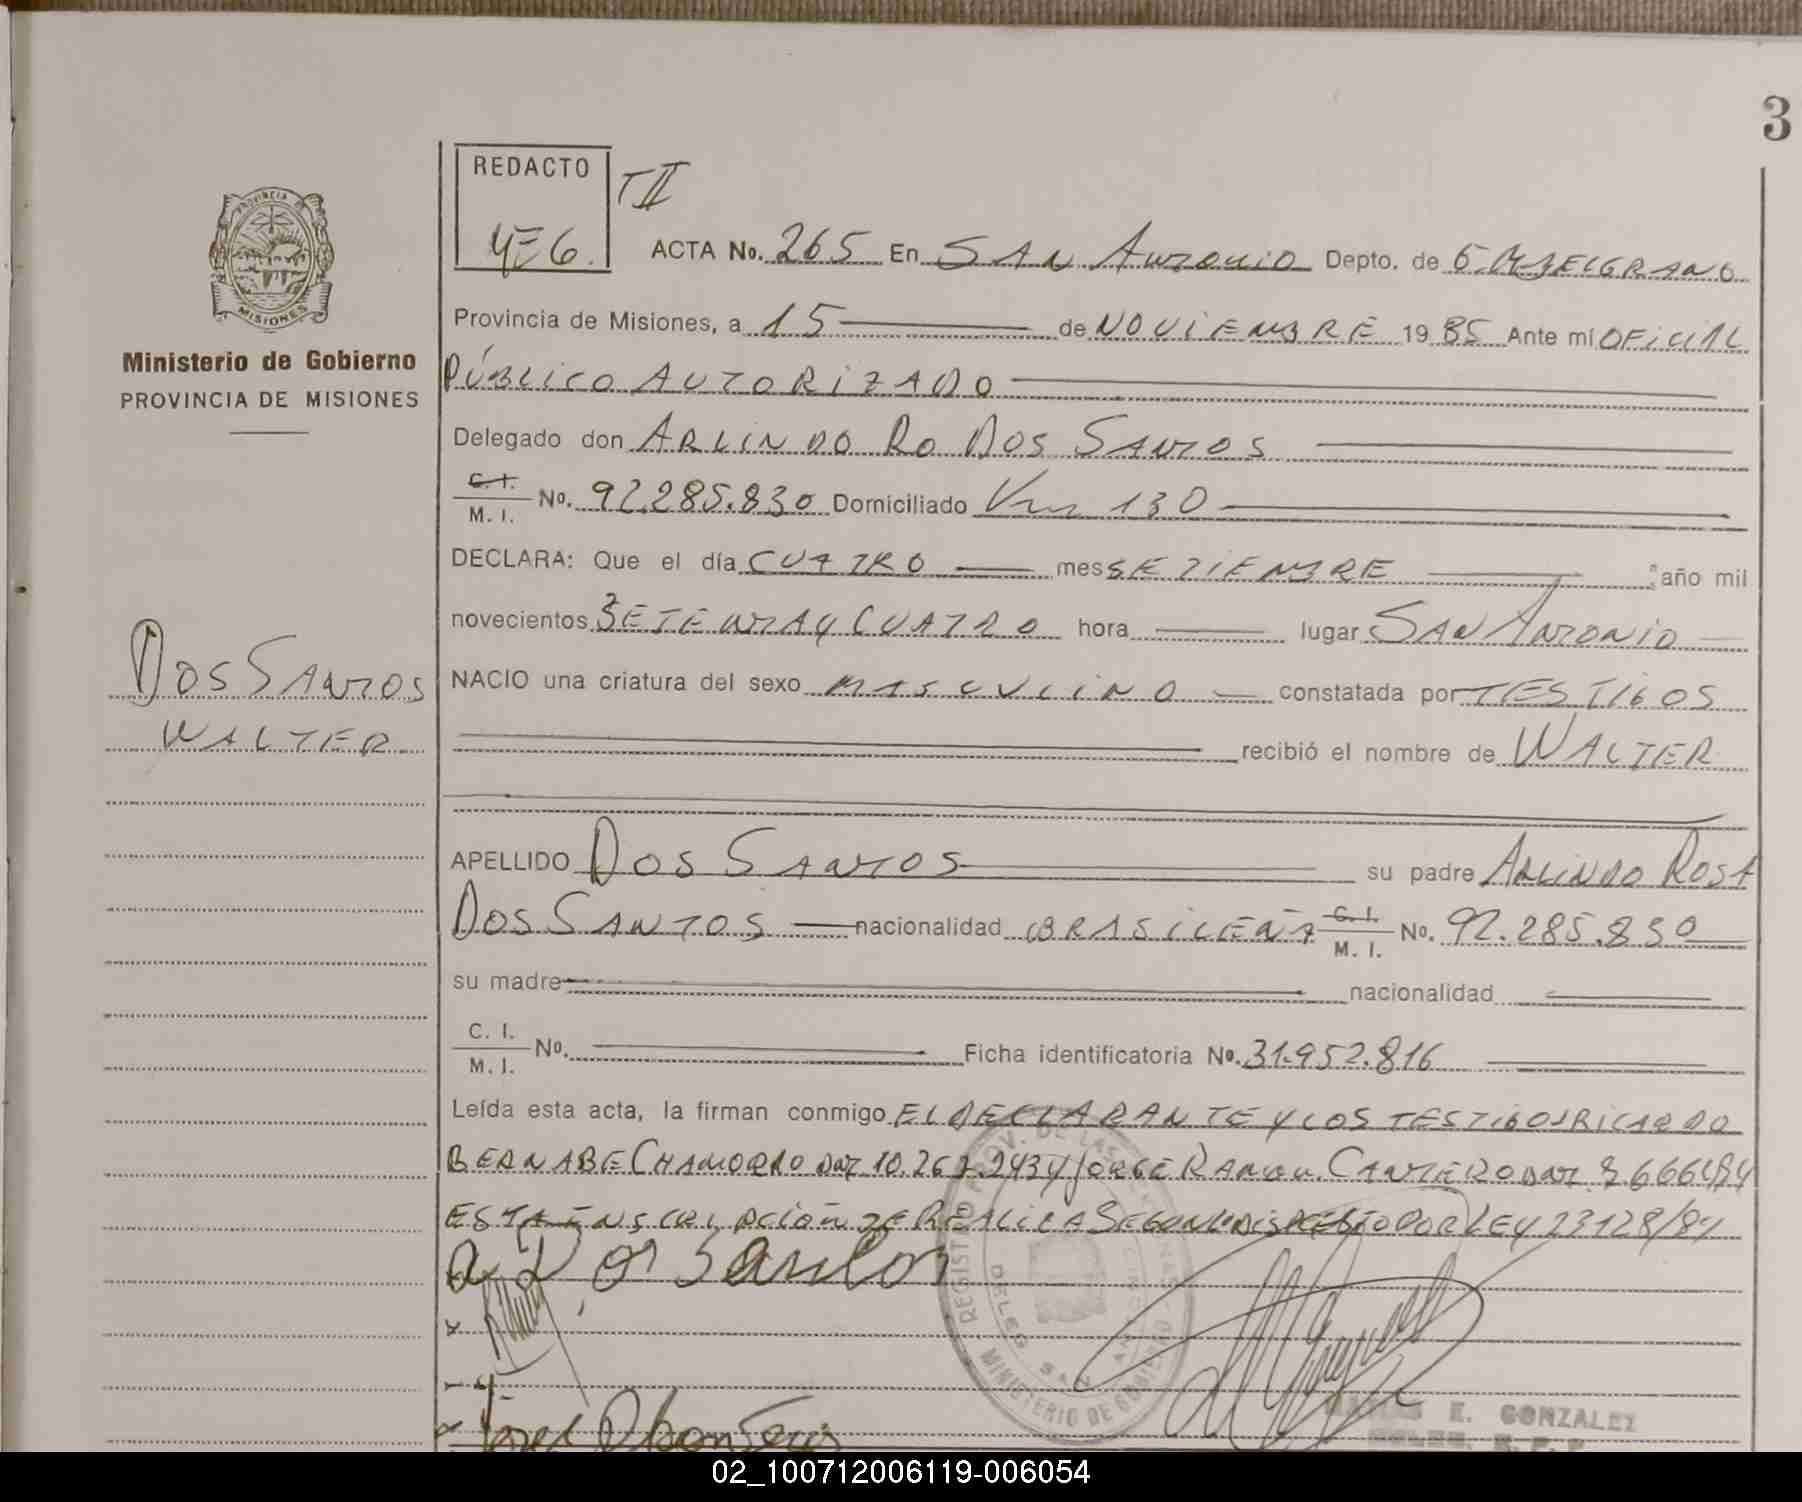 3
REDACTO
TII
PROVINCIA DE
MISIONES
Ministerio de Gobierno
PROVINCIA DE MISIONES
ACTA No. 265 En SAN ANTONIO Depto. de G. M. BELGRANO
Provincia de Misiones, a 15 de NOVIEMBRE 19 85 Ante mí OFICIAL
PÚBLICO AUTORIZADO
Delegado don ARLINDO RO DOS SANTOS
C. I.
M. I. No. 92.285.830 Domiciliado Km 130
DECLARA: Que el día CUATRO mes SETIEMBRE año mil
novecientos SETENTA Y CUATRO hora lugar SAN ANTONIO
DOS SANTOS
WALTER
NACIO una criatura del sexo MASCULINO constatada por TESTIGOS
recibió el nombre de WALTER
APELLIDO DOS SANTOS su padre ARLINDO ROSA
DOS SANTOS nacionalidad BRASILEÑA C. I. M. I. No. 92.285.830
su madre nacionalidad
C. I.
M. I. No. Ficha identificatoria No. 31.952.816
Leída esta acta, la firman conmigo EL DECLARANTE Y LOS TESTIGOS RICARDO
BERNABE CHAMORRO DNI 10.267.243 Y JORGE RAMON CANTERO DNI
ESTA INSCRIPCIÓN SE REALIZA SEGUN LO DISPUESTO POR LEY 23128/84
a D os Santos
REGISTRO PROV. DE LAS PERSONAS
MINISTERIO DE GOBIERNO
E. GONZALEZ
02_100712006119-006054